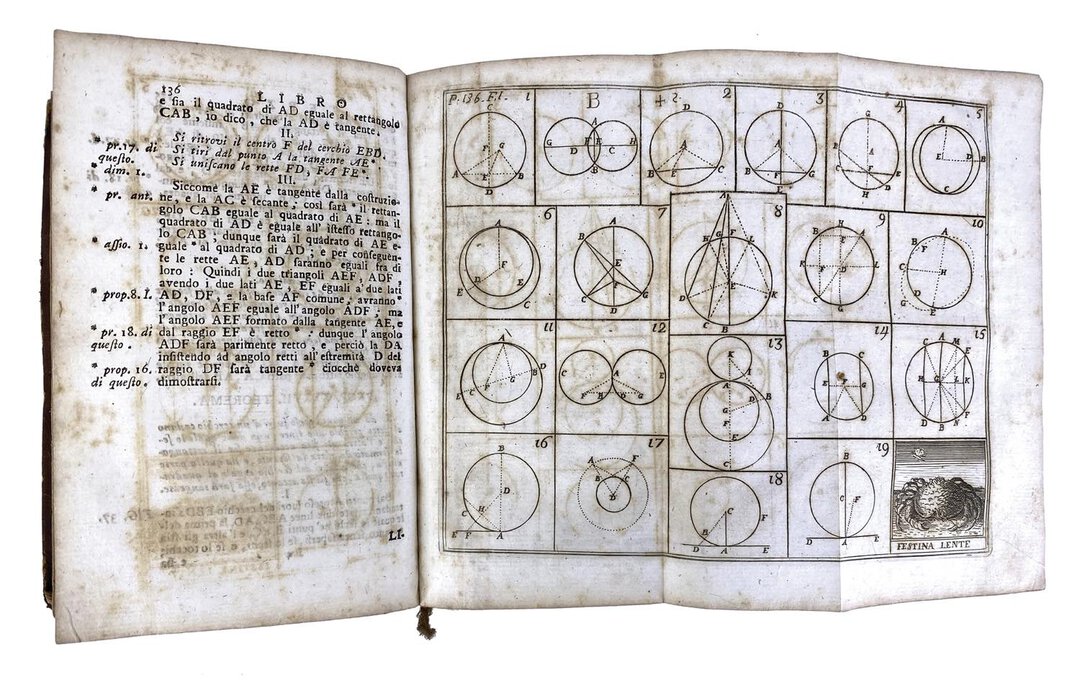 136
LIBRO
e sia il quadrato di AD eguale al rettangolo
CAB, io dico, che la AD è tangente.
II.
Si ritrovi il centro F del cerchio EBD.
* pr. 17. di Si tiri dal punto A la tangente AE*
questo. Si uniscano le rette FD, FA FE*.
dim. 1.
III.
Siccome la AE è tangente dalla costruzio-
* pr. ant. ne, e la AC è secante, così sarà * il rettan-
golo CAB eguale al quadrato di AE: ma il
quadrato di AD è eguale all' istesso rettango-
lo CAB; dunque sarà il quadrato di AE e-
* assio. 1. guale * al quadrato di AD, e per conseguen-
te le rette AE, AD saranno eguali fra di
loro: Quindi i due triangoli AEF, ADF,
avendo i due lati AE, EF eguali a'due lati
* prop. 8. I. AD, DF, e la base AF comune, avranno *
l'angolo AEF eguale all'angolo ADF, ma
l'angolo AEF formato dalla tangente AE, e
* pr. 18. di dal raggio EF è retto *: dunque l'angolo
questo. ADF sarà parimente retto, e perciò la DA
insistendo ad angolo retti all'estremità D del
* prop. 16. raggio DF sarà tangente * ciocchè doveva
di questo. dimostrarsi.
LI-
P. 136. F.I. 1 B 2 3 4 5
A G E B D
G D F E C H A B
D A B E C
D A B F G E
G A F C E H D
A E D B C
6 7 8 9 10
A F D E C
B A E C F G D
A H G F L D E K C B
H B E A K F D L C G
A B F C H D G E
11 12 13 14 15
A D G B F E C
C E A F H O G
K I A D B G F E C
B C E F G A D
C A M E H G L K F D B N
16 17 18 19
B D H C E F A
A F B C D
B C F D A E
B F C D A E
FESTINA LENTE